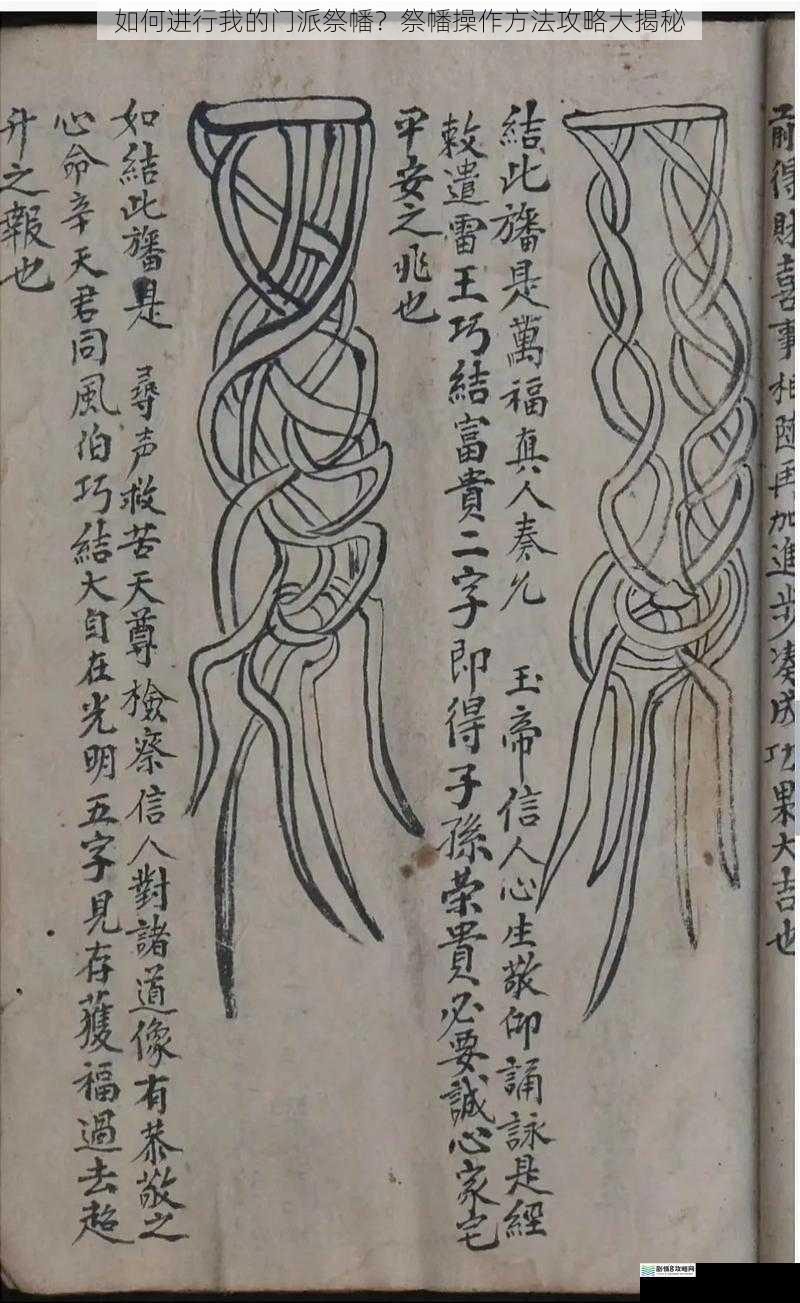 如何进行我的门派祭幡？祭幡操作方法攻略大揭秘
前得財喜事相随再加進步凑成功果大吉也
結此旛是萬福真人奏允 玉帝信人心生敬仰誦詠是經
敕遣雷王巧結富貴二字即得子孫荣貴必要誠心家宅
平安之兆也
如結此旛是 尋声救苦天尊檢察信人對諸道像有恭敬之
心命辛天君同風伯巧結大自在光明五字見存獲福過去超
升之報也
剧情8攻略网